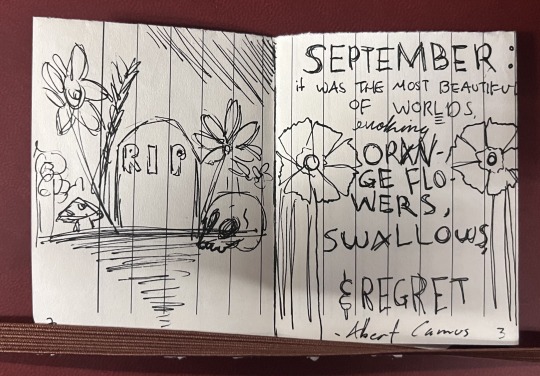 RIP
2
SEPTEMBER:
it WAS THE MOST BEAUTIFUL
OF WORLDS,
evoking
ORAN-
GE FLO-
WERS,
SWALLOWS,
& REGRET
- Albert Camus
3